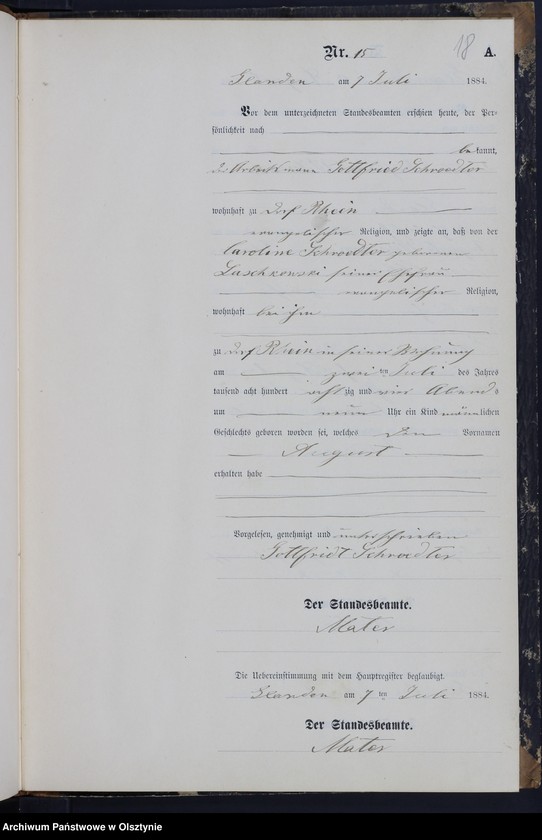 18
Nr. 15 A.
Glanden am 7 Juli 1884.
Vor dem unterzeichneten Standesbeamten erschien heute, der Per-
sönlichkeit nach
bekannt,
der Arbeitsmann Gottfried Schroedter
wohnhaft zu Dorf Rhein
evangelischer Religion, und zeigte an, daß von der
Caroline Schroedter geborenen
Laschkowski seiner Ehefrau
evangelischer Religion,
wohnhaft bei ihm
zu Dorf Rhein in seiner Wohnung
am zwei ten Juli des Jahres
tausend acht hundert acht zig und vier Abends
um neun Uhr ein Kind männlichen
Geschlechts geboren worden sei, welches den Vornamen
August
erhalten habe
Vorgelesen, genehmigt und unterschrieben
Gottfridt Schroedter
Der Standesbeamte.
Mater
Die Uebereinstimmung mit dem Hauptregister beglaubigt.
Glanden am 7 ten Juli 1884.
Der Standesbeamte.
Mater
Archiwum Państwowe w Olsztynie